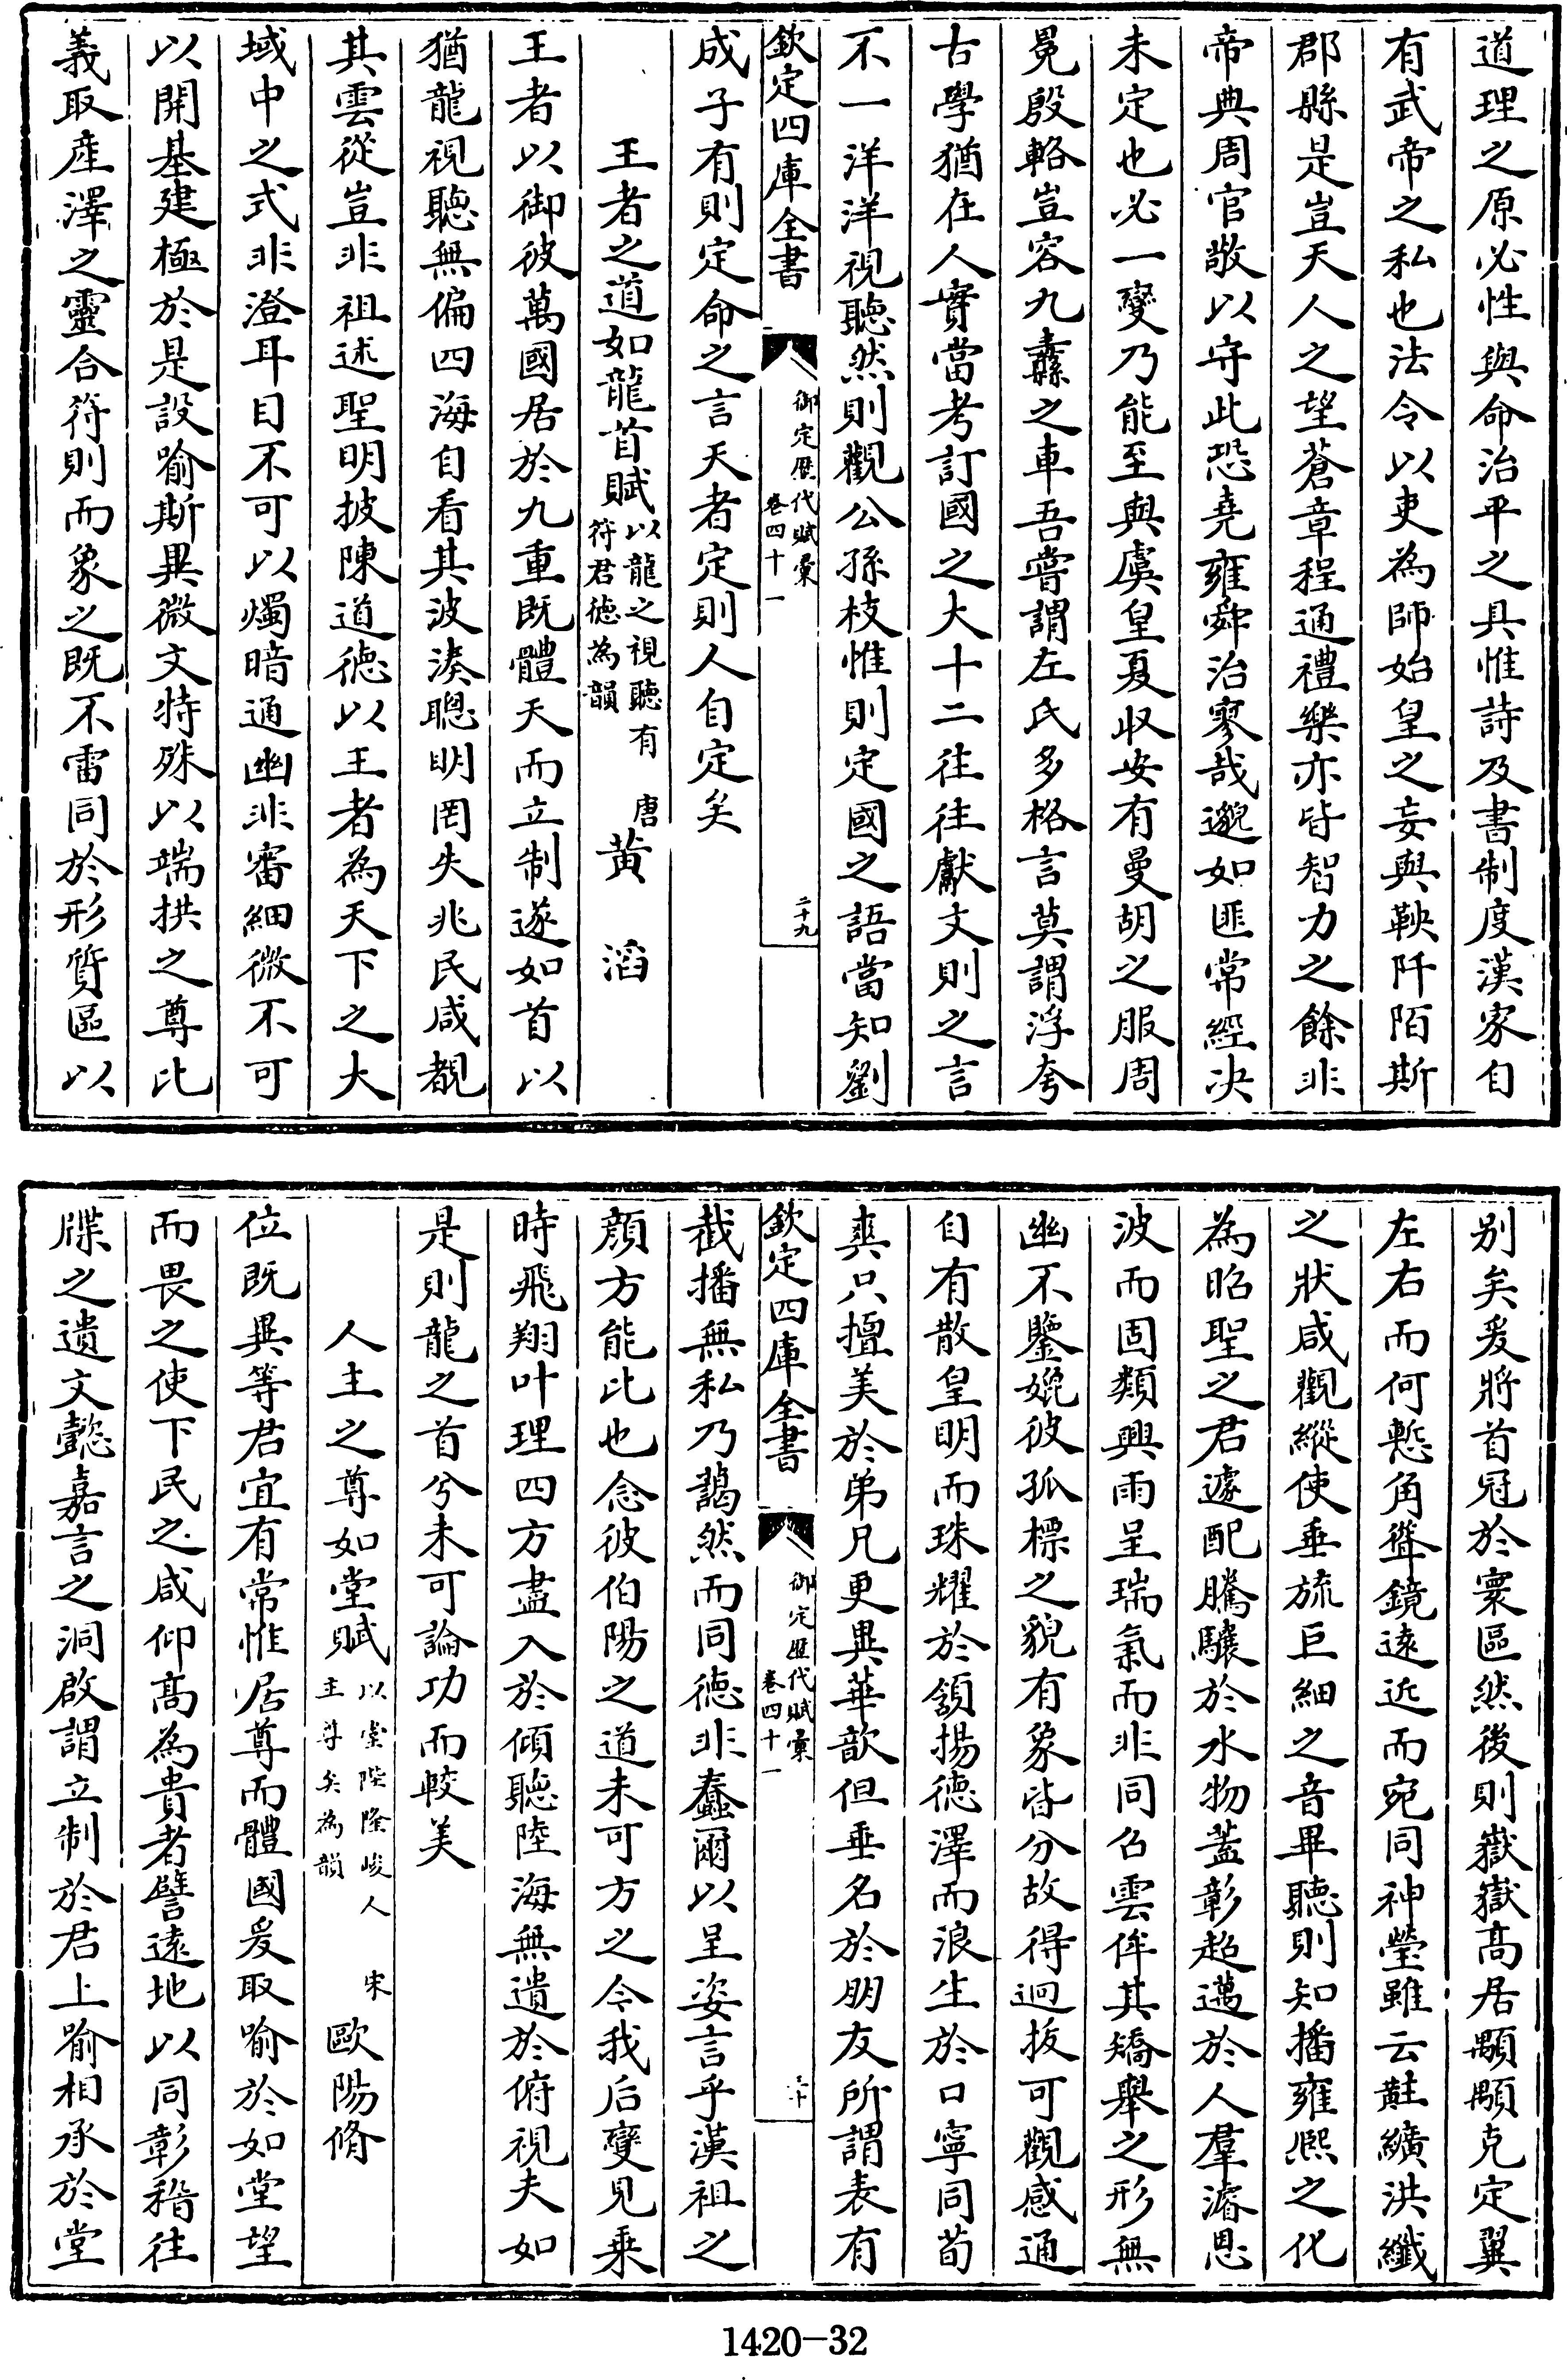 道理之原必性與命治平之具惟詩及書制度漢家自
有武帝之私也法令以吏為師始皇之妄與鞅阡陌斯
郡縣是豈天人之望蒼章程通禮樂亦皆智力之餘非
帝典周官敢以守此恐堯雍舜治寥哉邈如匪常經决
未定也必一變乃能至與虞皇夏収安有曼胡之服周
冕殷輅豈容九纛之車吾嘗謂左氏多格言莫謂浮夸
古學猶在人實當考訂國之大十二往往獻文則之言
不一洋洋視聽然則觀公孫枝惟則定國之語當知劉
欽定四庫全書
御定歷代賦彙
卷四十一
二十九
成子有則定命之言天者定則人自定矣
王者之道如龍首賦以龍之視聽有符君徳為韻 唐黄滔
王者以御彼萬國居於九重既體天而立制遂如首以
猶龍視聽無偏四海自看其波湊聰明罔失兆民咸覩
其雲從豈非祖述聖明披陳道徳以王者為天下之大
域中之式非澄耳目不可以燭暗通幽非審細微不可
以開基建極於是設喻斯異微文特殊以端拱之尊比
義取産澤之靈合符則而象之既不雷同於形質區以
别矣爰將首冠於寰區然後則嶽嶽髙居顒顒克定翼
左右而何慙角聳鏡遠近而宛同神瑩雖云黈纊洪纖
之狀咸觀縱使垂旒巨細之音畢聽則知播雍熈之化
為昭聖之君遽配騰驤於水物蓋彰超邁於人羣濬恩
波而固類興雨呈瑞氣而非同召雲侔其矯舉之形無
幽不鑒媲彼孤標之貌有象皆分故得迥抜可觀感通
自有散皇明而珠耀於頷揚徳澤而浪生於口寧同荀
爽只擅美於弟兄更異華歆但垂名於朋友所謂表有
欽定四庫全書
御定歷代賦彙
卷四十一
三十
截播無私乃謁然而同徳非蠢爾以呈姿言乎漢祖之
顔方能比也念彼伯陽之道未可方之今我后變見乗
時飛翔叶理四方盡入於傾聽陸海無遺於俯視夫如
是則龍之首兮未可論功而較美
人主之尊如堂賦以堂陛隆峻人主尊矣為韻 宋歐陽脩
位既異等君宜有常惟居尊而體國爰取喻於如堂望
而畏之使下民之咸仰髙為貴者譬遠地以同彰稽往
牒之遺文懿嘉言之洞啟謂立制於君上喻相承於堂
1420-32